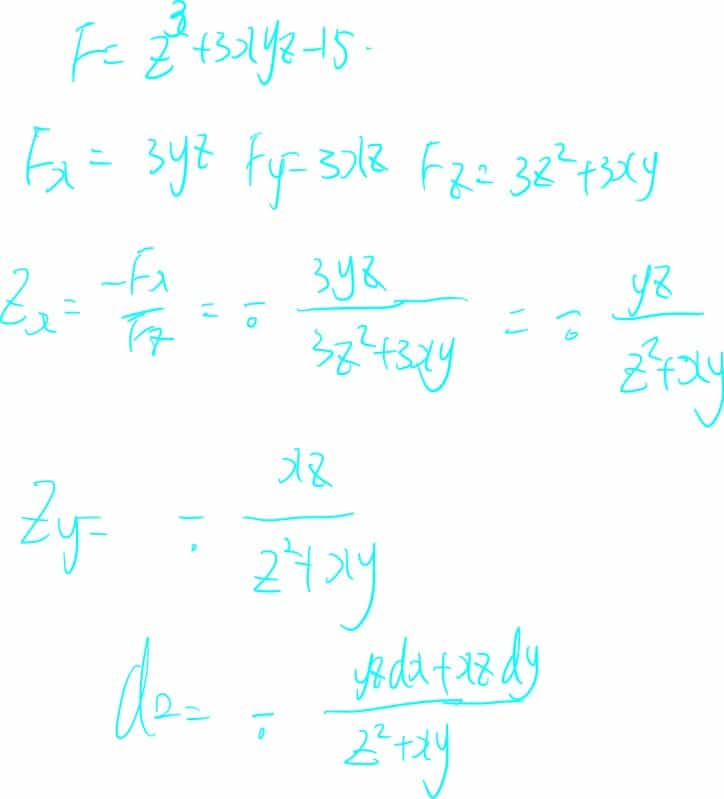 F = z³+3xyz-15.
Fx = 3yz Fy = 3xz Fz = 3z²+3xy
Zx = -Fx/Fz = - 3yz/(3z²+3xy) = - yz/(z²+xy)
Zy = - xz/(z²+xy)
dz = - (yzdx+xzdy)/(z²+xy)